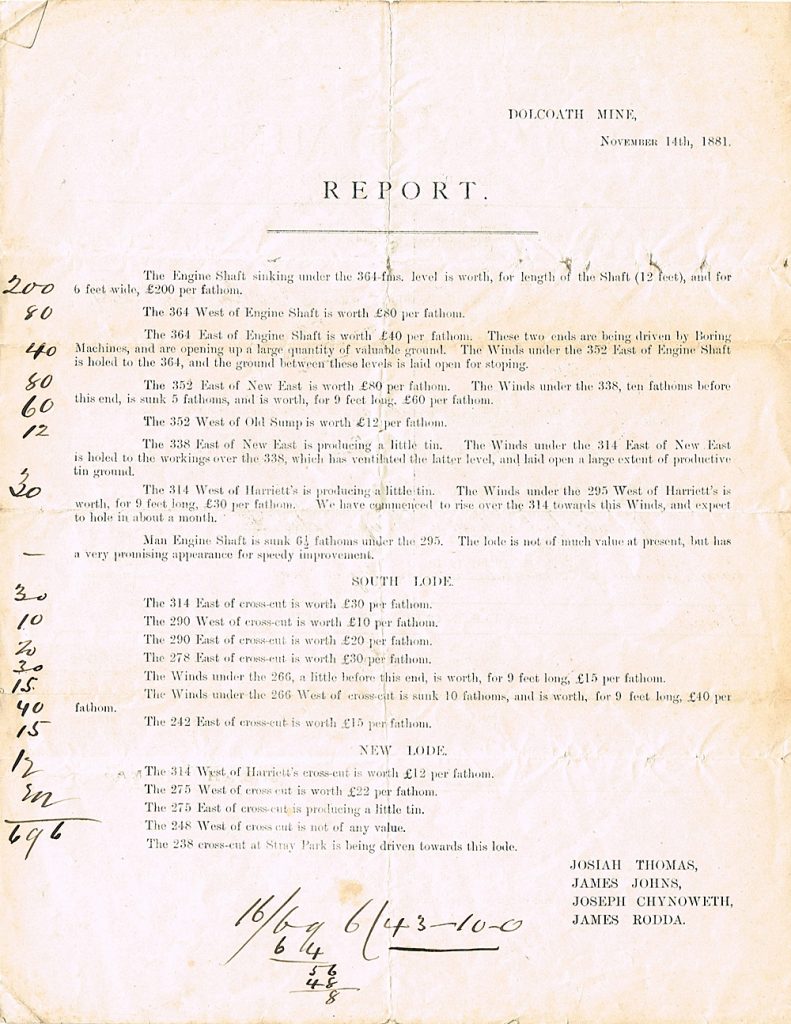 DOLCOATH MINE,
NOVEMBER 14th, 1881.
REPORT.
200 The Engine Shaft sinking under the 364-fms. level is worth, for length of the Shaft (12 feet), and for
6 feet wide, £200 per fathom.
80 The 364 West of Engine Shaft is worth £80 per fathom.
The 364 East of Engine Shaft is worth £40 per fathom. These two ends are being driven by Boring
40 Machines, and are opening up a large quantity of valuable ground. The Winds under the 352 East of Engine Shaft
is holed to the 364, and the ground between these levels is laid open for stoping.
80 The 352 East of New East is worth £80 per fathom. The Winds under the 338, ten fathoms before
60 this end, is sunk 5 fathoms, and is worth, for 9 feet long, £60 per fathom.
12 The 352 West of Old Sump is worth £12 per fathom.
The 338 East of New East is producing a little tin. The Winds under the 314 East of New East
is holed to the workings over the 338, which has ventilated the latter level, and laid open a large extent of productive
tin ground.
30 The 314 West of Harriett's is producing a little tin. The Winds under the 295 West of Harriett's is
worth, for 9 feet long, £30 per fathom. We have commenced to rise over the 314 towards this Winds, and expect
to hole in about a month.
Man Engine Shaft is sunk 6½ fathoms under the 295. The lode is not of much value at present, but has
— a very promising appearance for speedy improvement.
SOUTH LODE.
30 The 314 East of cross-cut is worth £30 per fathom.
10 The 290 West of cross-cut is worth £10 per fathom.
20 The 290 East of cross-cut is worth £20 per fathom.
30 The 278 East of cross-cut is worth £30 per fathom.
15 The Winds under the 266, a little before this end, is worth, for 9 feet long, £15 per fathom.
40 The Winds under the 266 West of cross-cut is sunk 10 fathoms, and is worth, for 9 feet long, £40 per
fathom.
15 The 242 East of cross-cut is worth £15 per fathom.
NEW LODE.
12 The 314 West of Harriett's cross-cut is worth £12 per fathom.
22 The 275 West of cross cut is worth £22 per fathom.
The 275 East of cross-cut is producing a little tin.
696 The 248 West of cross cut is not of any value.
The 238 cross-cut at Stray Park is being driven towards this lode.
JOSIAH THOMAS,
JAMES JOHNS,
JOSEPH CHYNOWETH,
JAMES RODDA.
16/696(43-10-0
64
56
48
8